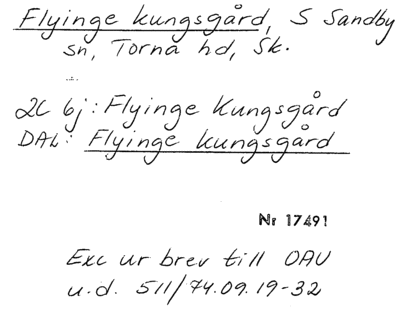 Flyinge kungsgård, S Sandby
sn, Torna hd, Sk.
2C 6j: Flyinge Kungsgård
DAL: Flyinge kungsgård
Nr 17491
Exc ur brev till OAU
u.d. 511/74.09.19-32